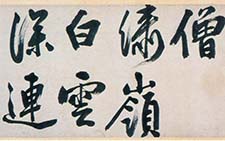 僧
歸嶺
白雲
深連